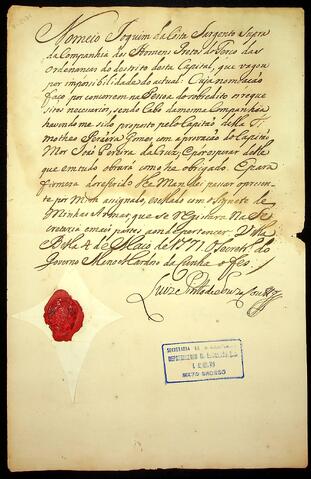 Nomeio Joquim da Costa Sargento Supra
da Companhia dos Homens Preto do Terço das
Ordenanças do destrito desta Capital, que vagou
por imposibilidade do actual: Cuja nomeação
faço por concorrerem na Pessoa do sobredito os reque
sitos necesarios, sendo Cabo da mesma Companhia
havendome sido proposto pelo Capitão della Ti-
motheo Pereira Gomes com aprovação do Capitão
Mor José Pereira da Cruz; E por esperar delle
que em tudo obrará como he obrigado. E para
firmeza do referido lhe Mandei passar o presen
te por mim asignado, e sellado com o Signete de
Minhas Armas, que se registara na Se-
cretaria e mais partes a que pertencer. Villa
Bella 4 de Maio de 1771 O Secretr.º do
Governo Manoel Cardozo da Cunha o fez
Luiz Pinto de Souza
SECRETARIA DE
MATO GROSSO